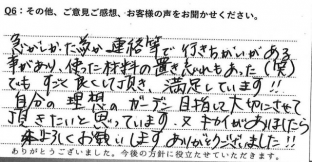 Q6：その他、ご意見ご感想、お客様の声をお聞かせください。
急がしかった為か連絡等で行きちがいがある
事があり、使った材料の置き忘れもあった(笑)
でも すごく良くして頂き、満足しています!!
自分の理想のガーデン目指して大切にさせて
頂きたいと思っています。又 キカイがありましたら
よろしくお願いします ありがとうございました!!
ありがとうございました。今後の方針に役立たせていただきます。